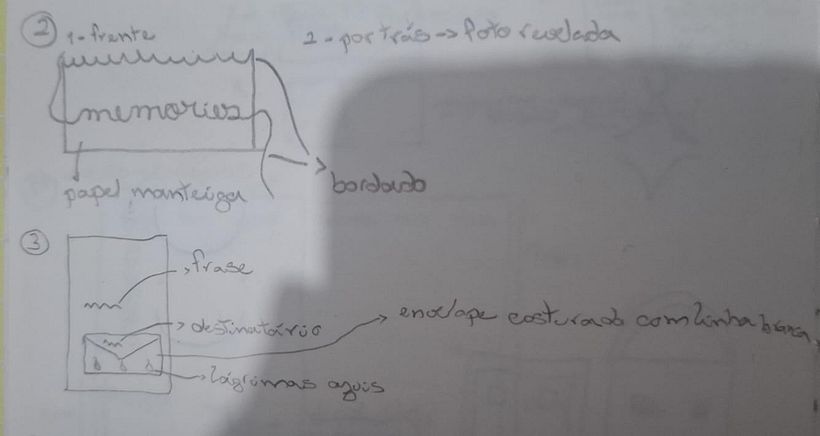 2
1-frente
2-por trás -> foto revelada
memories
papel manteiga
bordado
3
frase
destinatário
envelope costurado com linha branca,
lágrimas azuis